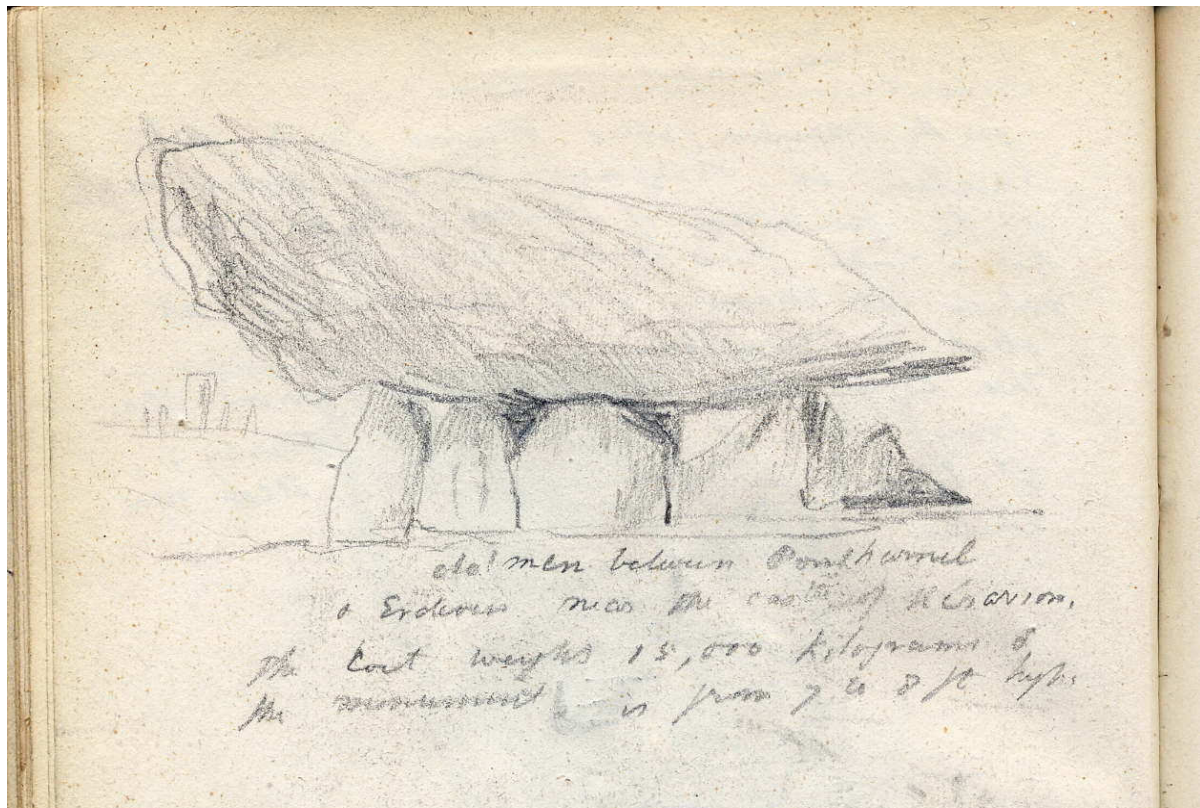 dolmen between Pontharnel
& Erdeven near the castle of Keravion.
The weighs 15,000 kilograms &
the monument is from 7 to 8 ft high.